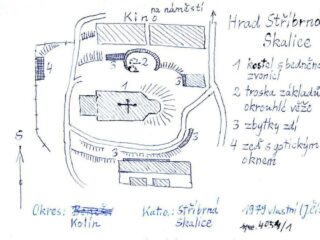 na náměstí
Kino
Hrad Stříbrná
Skalice
1 kostel s bedněnou
zvonicí
2 troska základů
okrouhlé věže
3 zbytky zdí
4 zeď s gotickým
oknem
4
3
2
3
1
3
S
Okres:
Kolín
Kat.o.: Stříbrná
Skalice
1979 vlastní (J.Čís